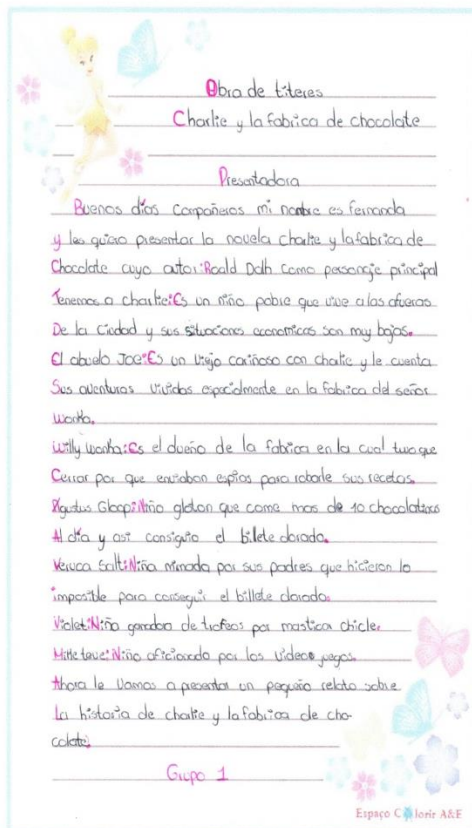 Obra de titeres
Charlie y la fabrica de chocolate
Presentadora
Buenos días compañeros mi nombre es fernanda
y les quiero presentar la novela charlie y la fabrica de
Chocolate cuyo autor: Roald Dalh como personaje principal
Tenemos a charlie: Es un niño pobre que vive a las afueras
De la ciudad y sus situaciones economicas son muy bajas.
El abuelo Joe: Es un viejo cariñoso con charlie y le cuenta
Sus aventuras vividas especialmente en la fabrica del señor
wonka.
Willy wonka: Es el dueño de la fabrica en la cual tuvo que
Cerrar por que enviaban espias para robarle sus recetas.
Agustus Gloop: Niño gloton que come mas de 10 chocolatinas
Al día y asi consiguio el billete dorado.
Veruca Salt: Niña mimada por sus padres que hicieron lo
imposible para conseguir el billete dorado.
Violet: Niña ganadora de trofeos por masticar chicle.
Mike teve: Niño aficionado por los videos juegos.
Ahora le vamos a presentar un pequeño relato sobre
La historia de charlie y la fabrica de cho-
colate.
Grupo 1
Espaço Colorir A&E